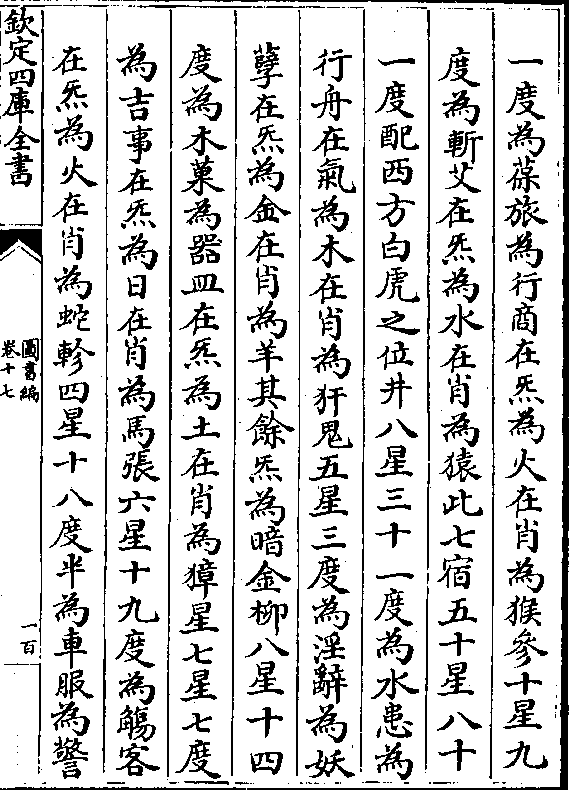 一度為葆旅為行商在炁為火在肖為猴參十星九
度為斬艾在炁為水在肖為猿此七宿五十星八十
一度配西方白虎之位井八星三十一度為水患為
行舟在氣為木在肖為犴鬼五星三度為淫辭為妖
孽在炁為金在肖為羊其餘炁為暗金柳八星十四
度為木菓為器皿在炁為土在肖為獐星七星七度
為吉事在炁為日在肖為馬張六星十九度為觴客
在炁為火在肖為蛇軫四星十八度半為車服為警
欽定四庫全書
圖書編
卷十七
一百